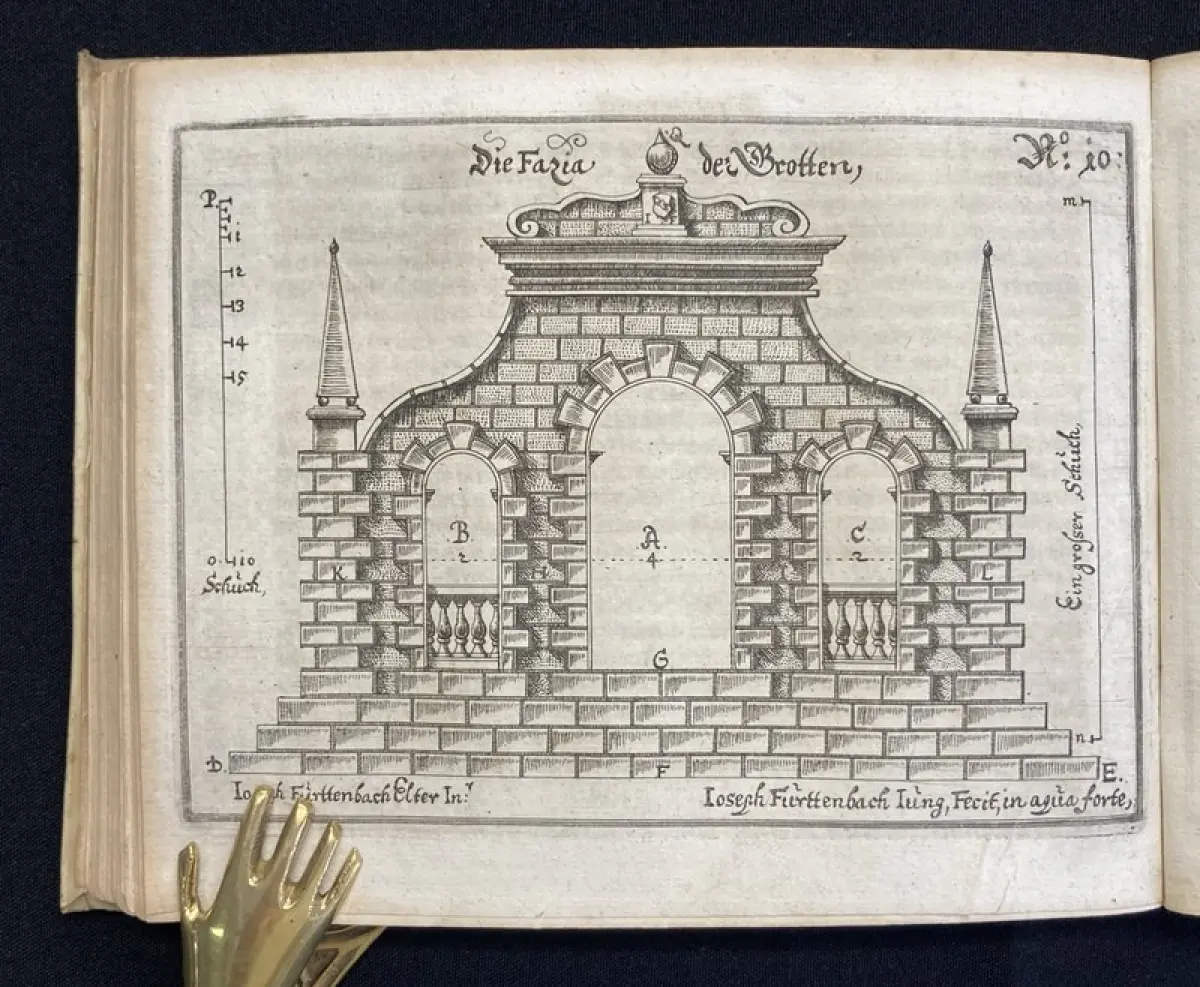 Die Fazia der Grotten,
No: 10:
Q
P.
11
12
13
14
15
0 10
Schůch,
m
Ein grosser Schůch,
n
B
2
A
4
C
2
K
H
L
G
F
D.
E.
Ioseph Fůrttenbach Elter Inr
Ioseph Fůrttenbach Iůng, Fecit, in aqůa forte,